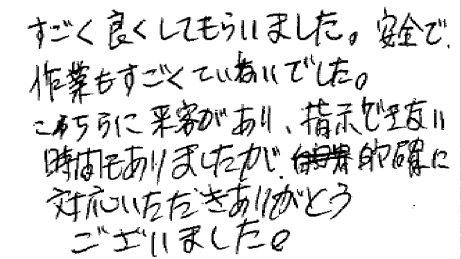 すごく良くしてもらいました。安全で、
作業もすごくていねいでした。
こちらに来客があり、指示できない
時間もありましたが、的確に
対応いただきありがとう
ございました。